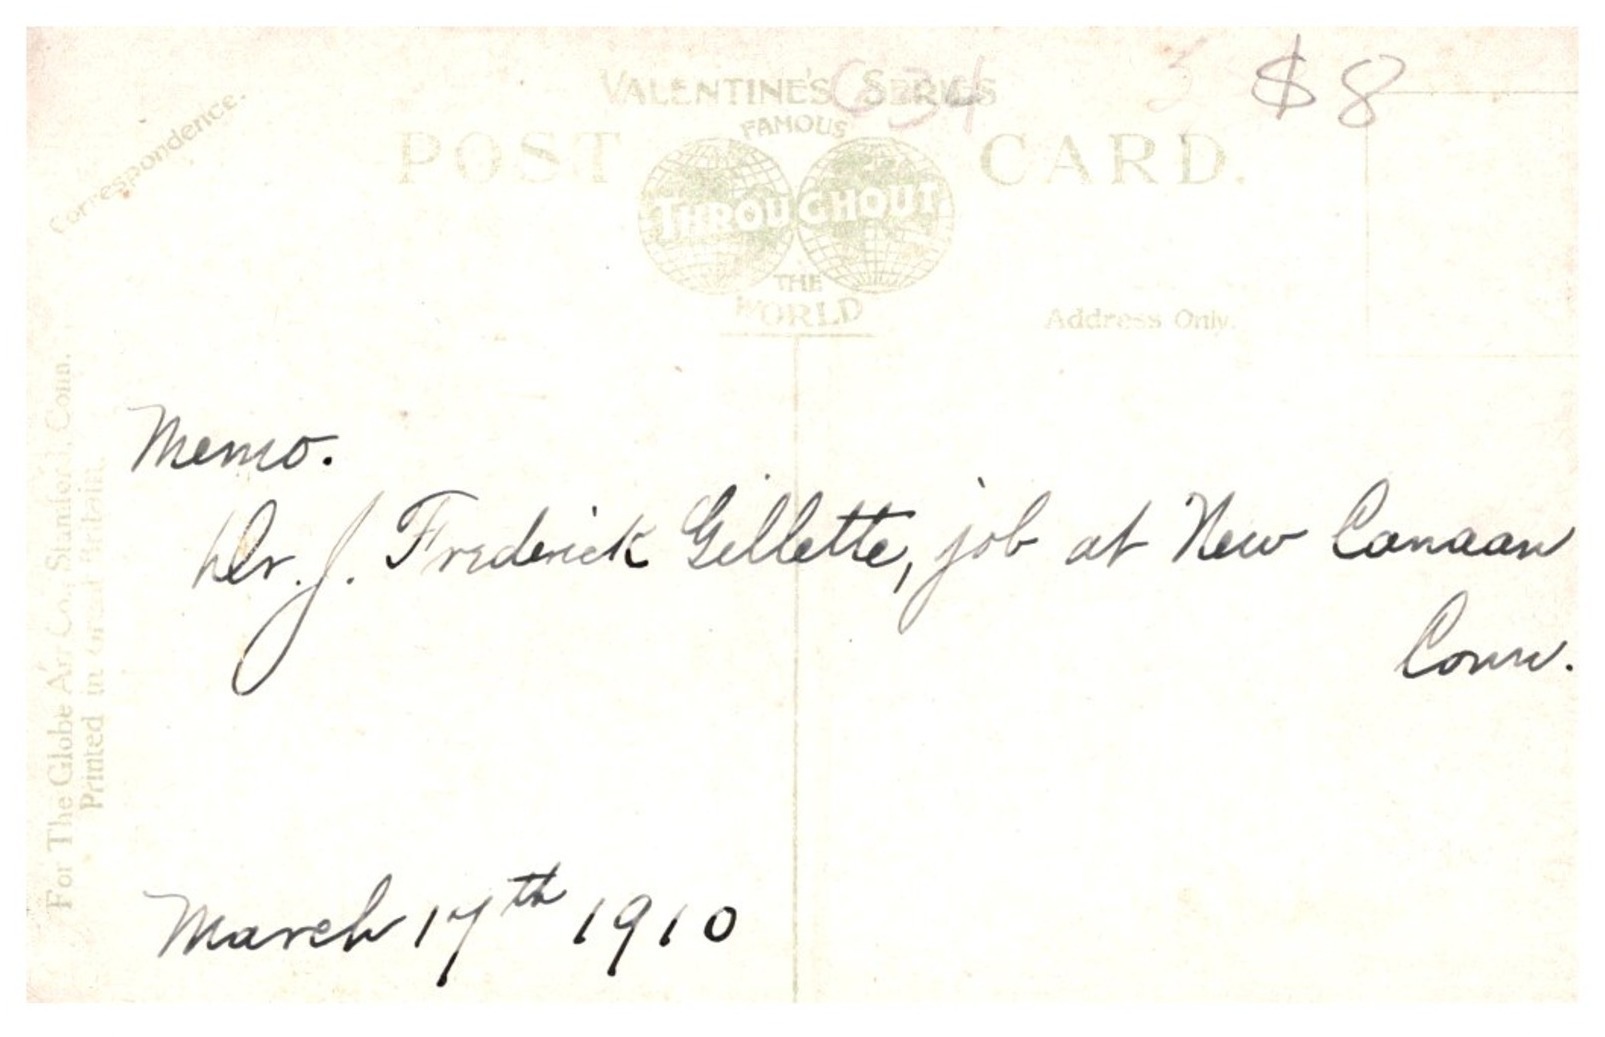 $8
VALENTINE'S SERIES
FAMOUS
POST CARD.
THROUGHOUT
THE
WORLD
Correspondence.
Address Only.
For The Globe Art Co., Stamford, Conn.
Printed in Great Britain.
Memo.
Dr. J. Frederick Gillette, job at New Canaan
Conn.
March 17th 1910